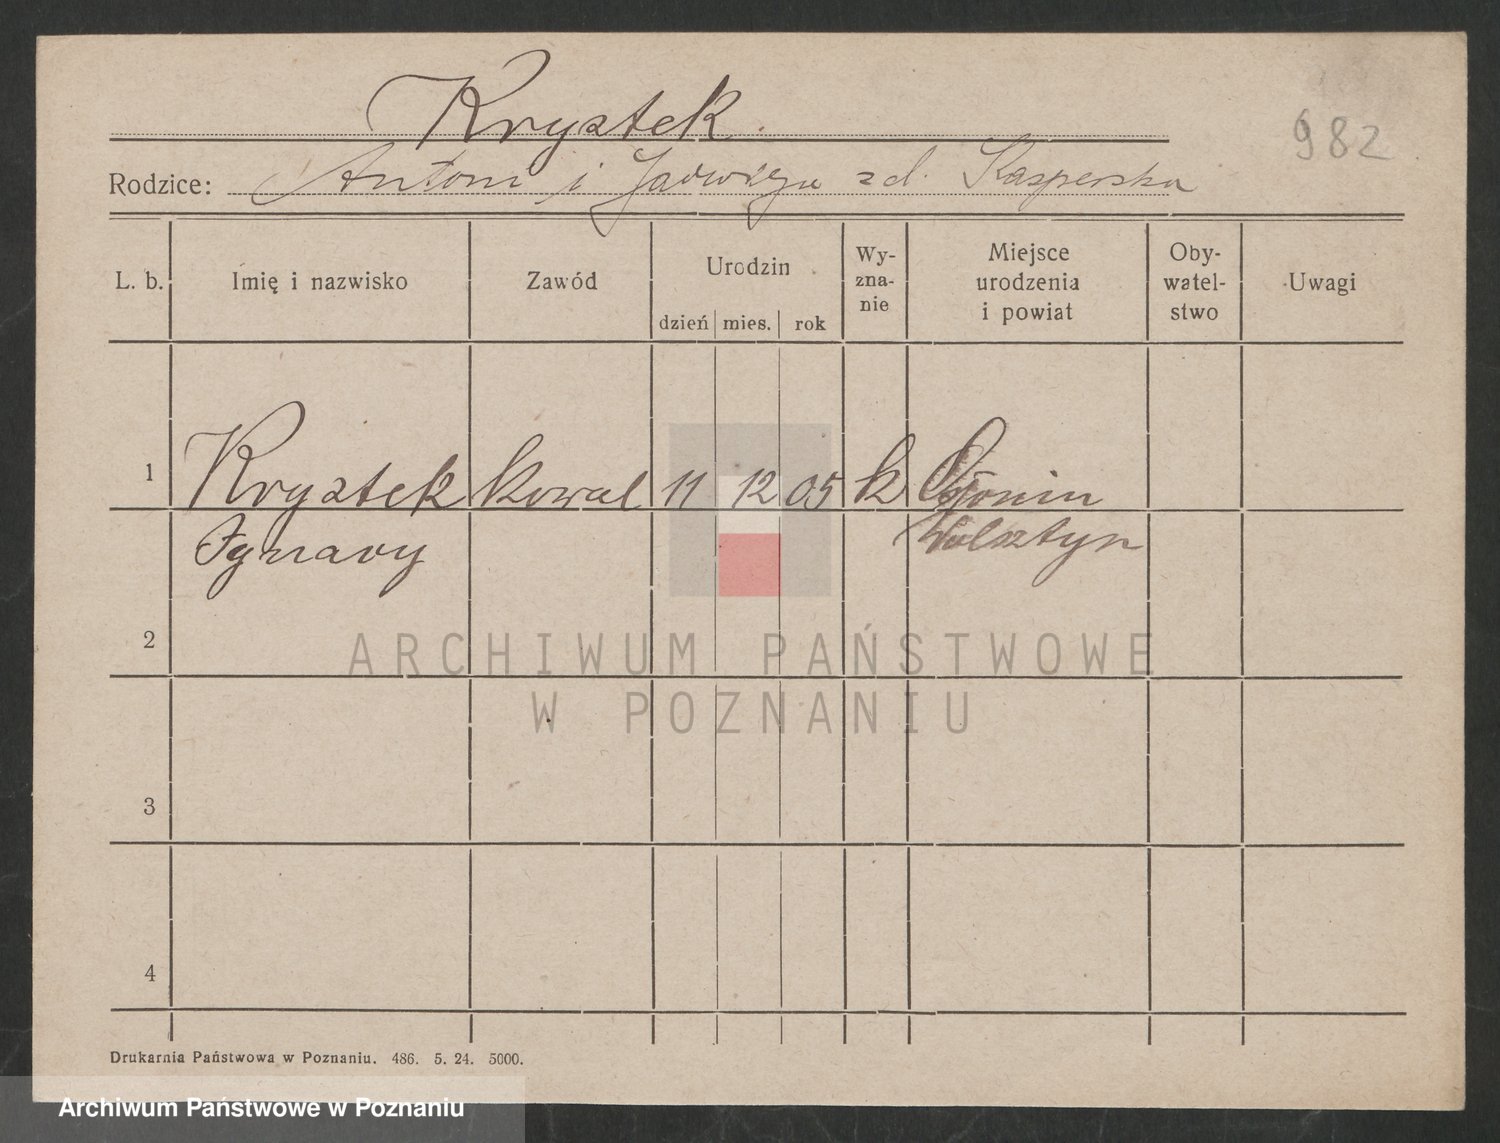 Krystek
982
Rodzice: Antoni i Jadwiga zd. Kasperska
L. b. Imię i nazwisko Zawód Urodzin dzień mies. rok Wy-zna-nie Miejsce urodzenia i powiat Oby-watel-stwo Uwagi
1 Krystek kowal 11 12 05 k
Ignacy Wolsztyn
2
ARCHIWUM PAŃSTWOWE
W POZNANIU
3
4
Drukarnia Państwowa w Poznaniu. 486. 5. 24. 5000.
Archiwum Państwowe w Poznaniu